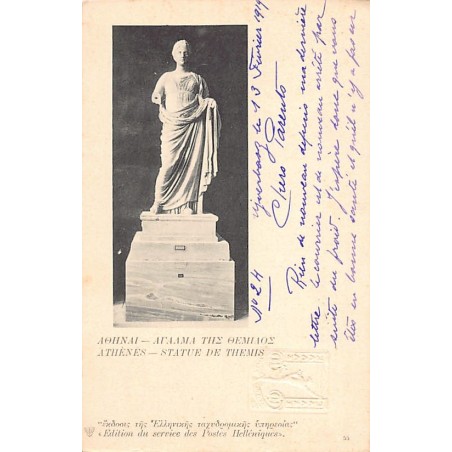 ΑΘΗΝΑΙ — ΑΓΑΛΜΑ ΤΗΣ ΘΕΜΙΔΟΣ
ATHÈNES — STATUE DE THEMIS
"ἔκδοσις τῆς Ἑλληνικῆς ταχυδρομικῆς ὑπηρεσίας"
«Edition du service des Postes Helléniques».
N° 24 le 13 Février 19
Chers Parents
Rien de nouveau depuis ma dernière
lettre le courrier est de nouveau arrêté par
suite du froid. J'espère donc que vous
êtes en bonne santé et qu'il n'y a pas eu